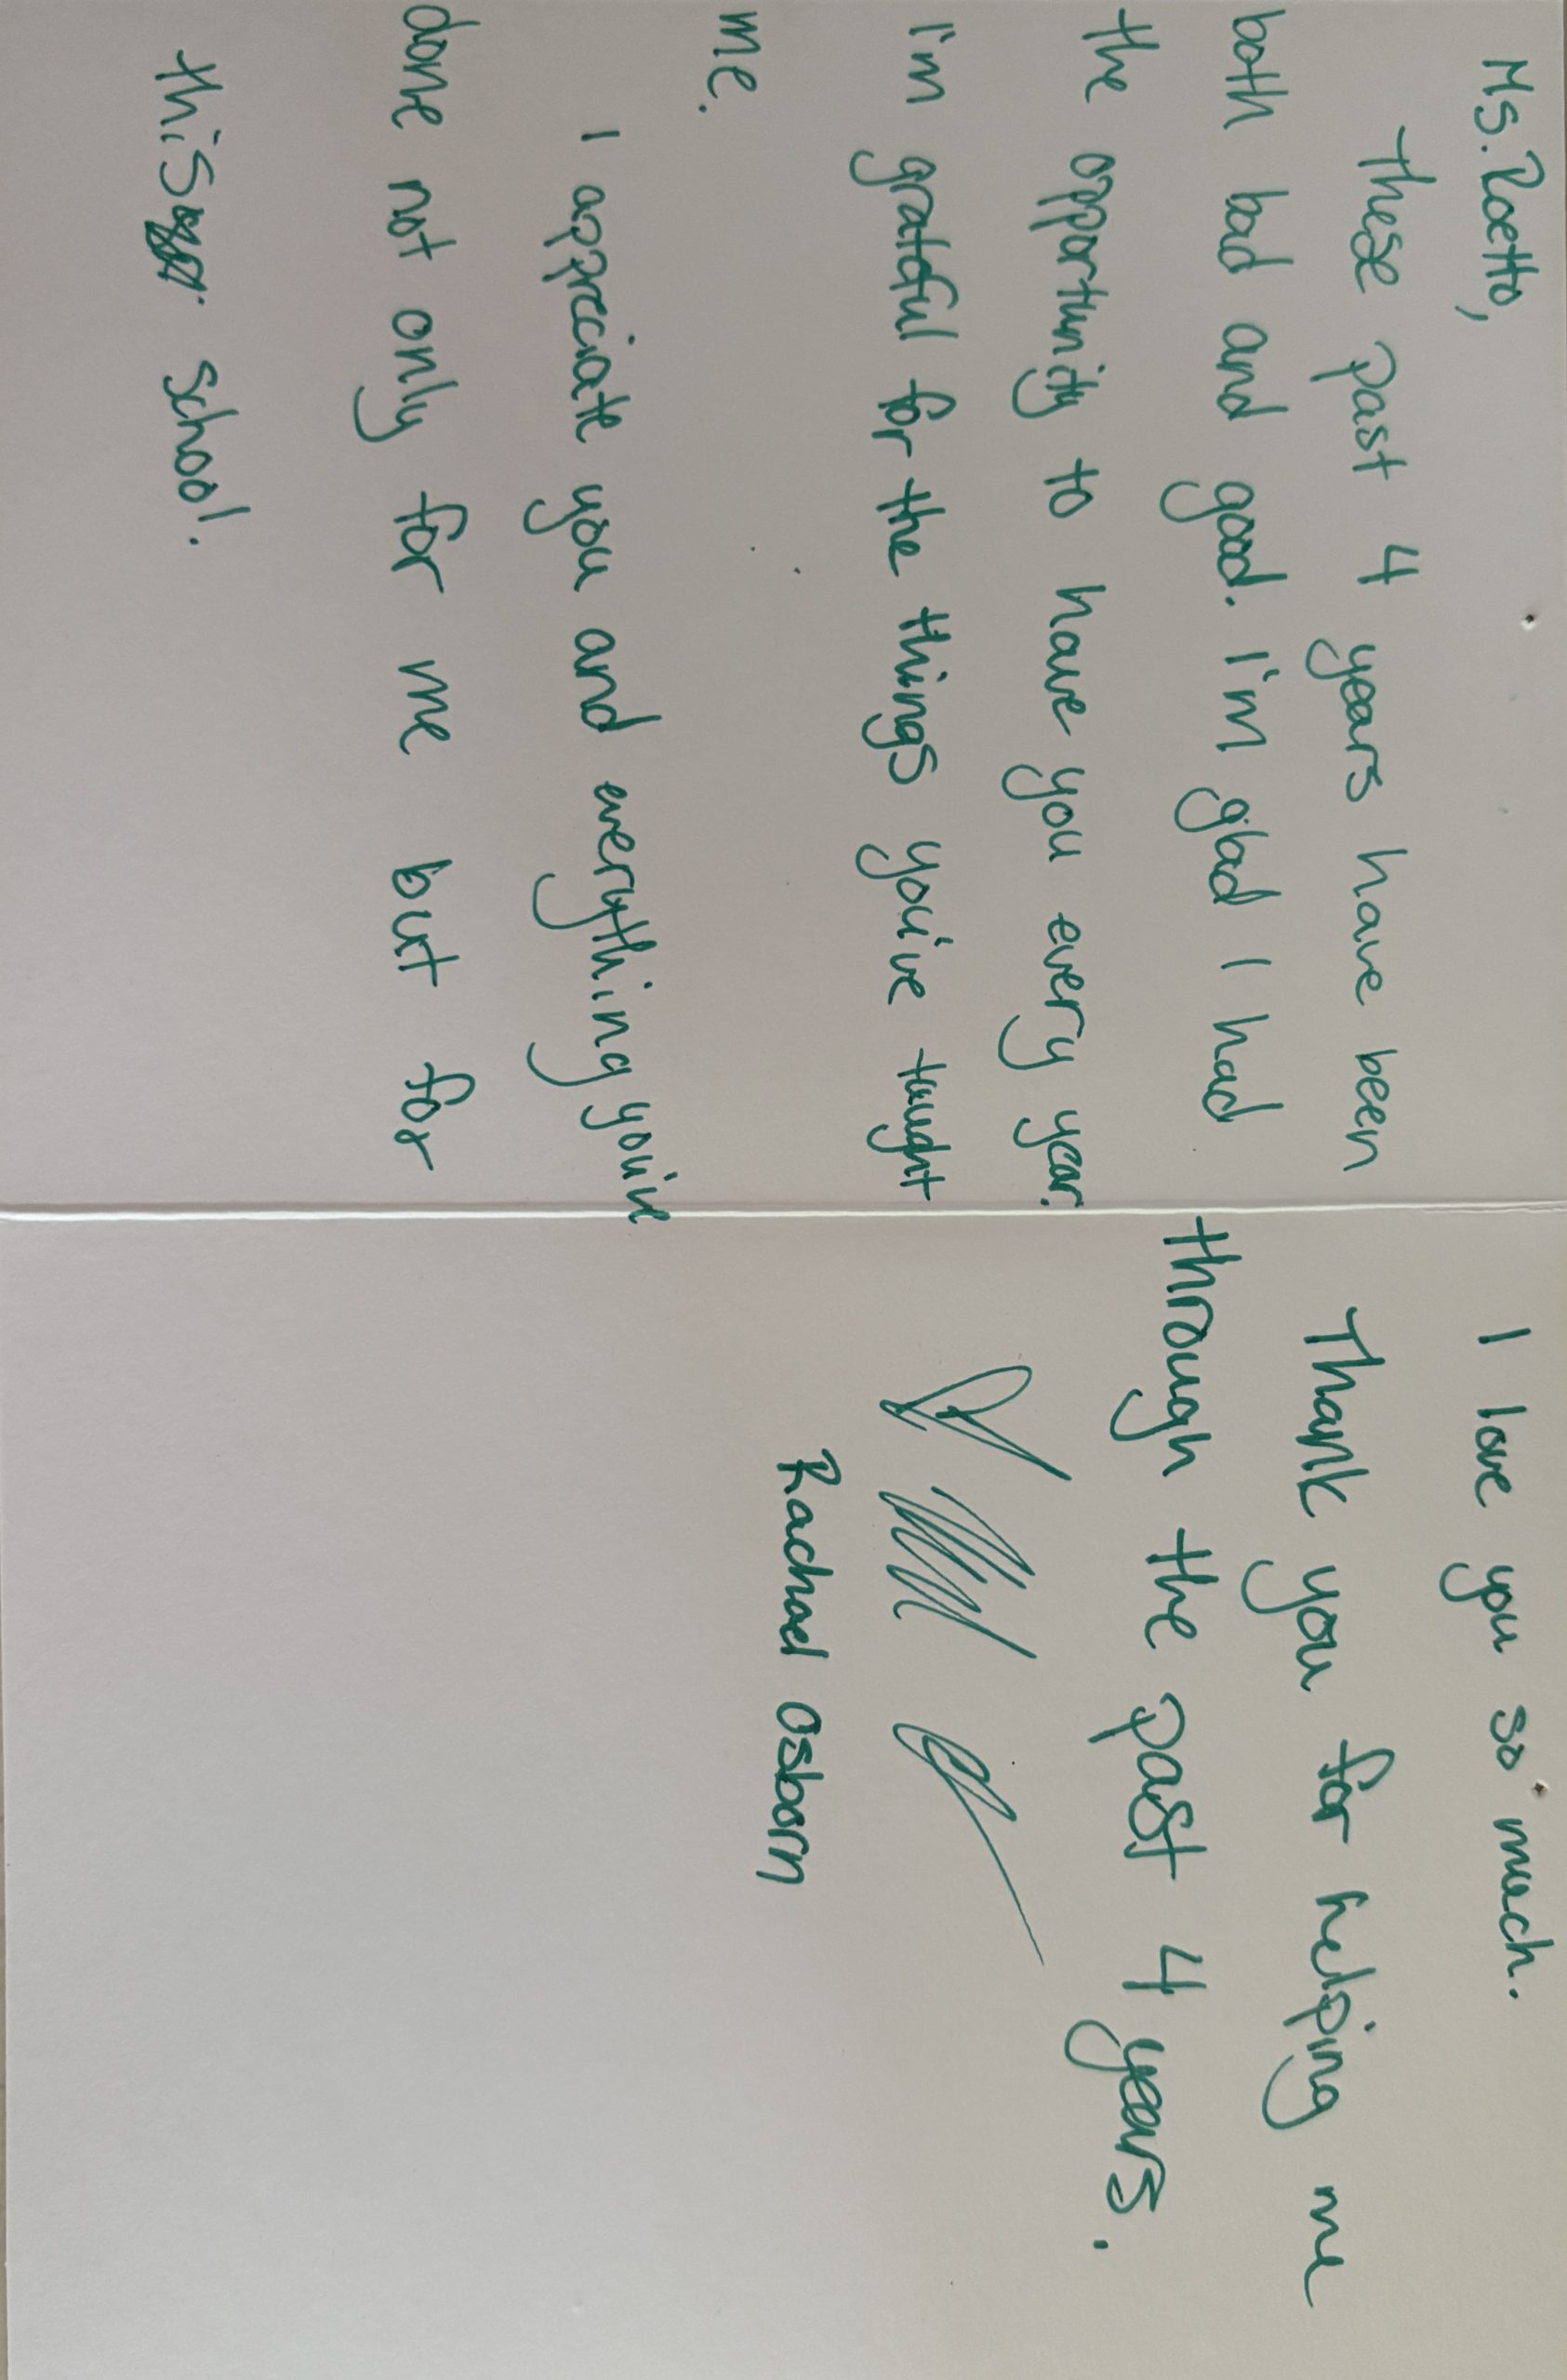 Ms. Roetto,
These past 4 years have been
both bad and good. I'm glad I had
the opportunity to have you every year.
I'm grateful for the things you've taught
me.
I appreciate you and everything you've
done not only for me but for
this school.
I love you so much.
Thank you for helping me
through the past 4 years.
Rachael Osborn